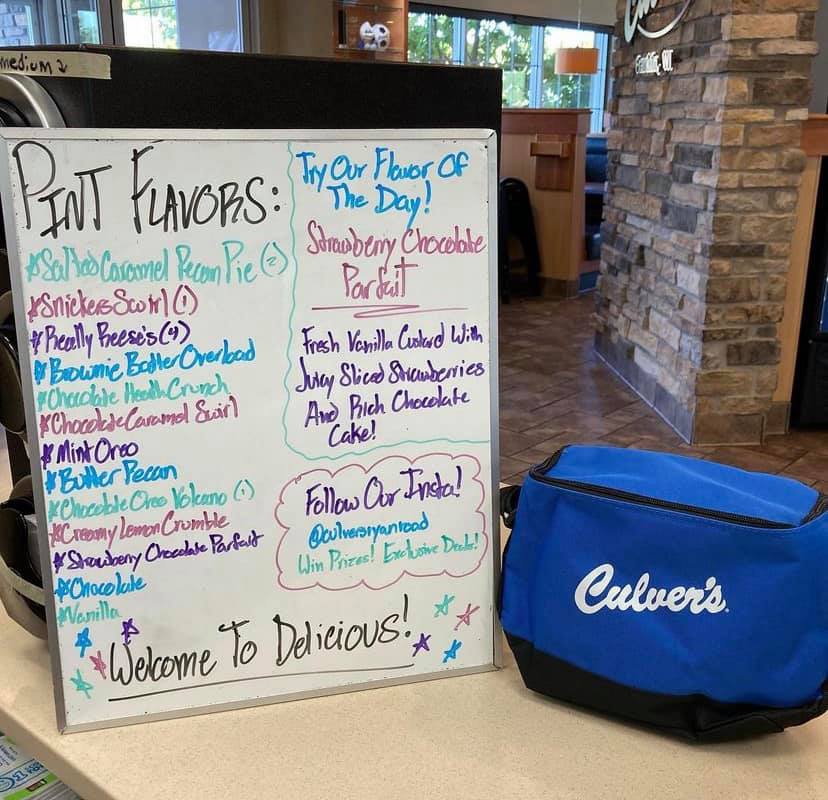 medium 2
PINT FLAVORS:
*Salted Caramel Pecan Pie (2)
*Snickers Swirl (1)
*Really Reese's (4)
*Brownie Batter Overload
*Chocolate Heath Crunch
*Chocolate Caramel Swirl
*Mint Oreo
*Butter Pecan
*Chocolate Oreo Volcano (1)
*Creamy Lemon Crumble
*Strawberry Chocolate Parfait
*Chocolate
*Vanilla
Try Our Flavor Of
The Day!
Strawberry Chocolate
Parfait
Fresh Vanilla Custard With
Juicy Sliced Strawberries
And Rich Chocolate
Cake!
Follow Our Insta!
@culversryanroad
Win Prizes! Exclusive Deals!
Welcome To Delicious!
Culver's